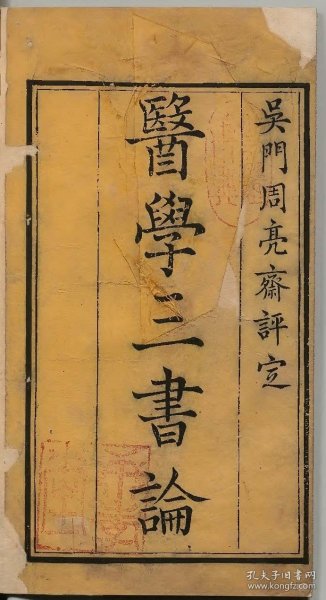 吳門周亮齋評定
醫學三書論
孔夫子旧书网
www.kongfz.com